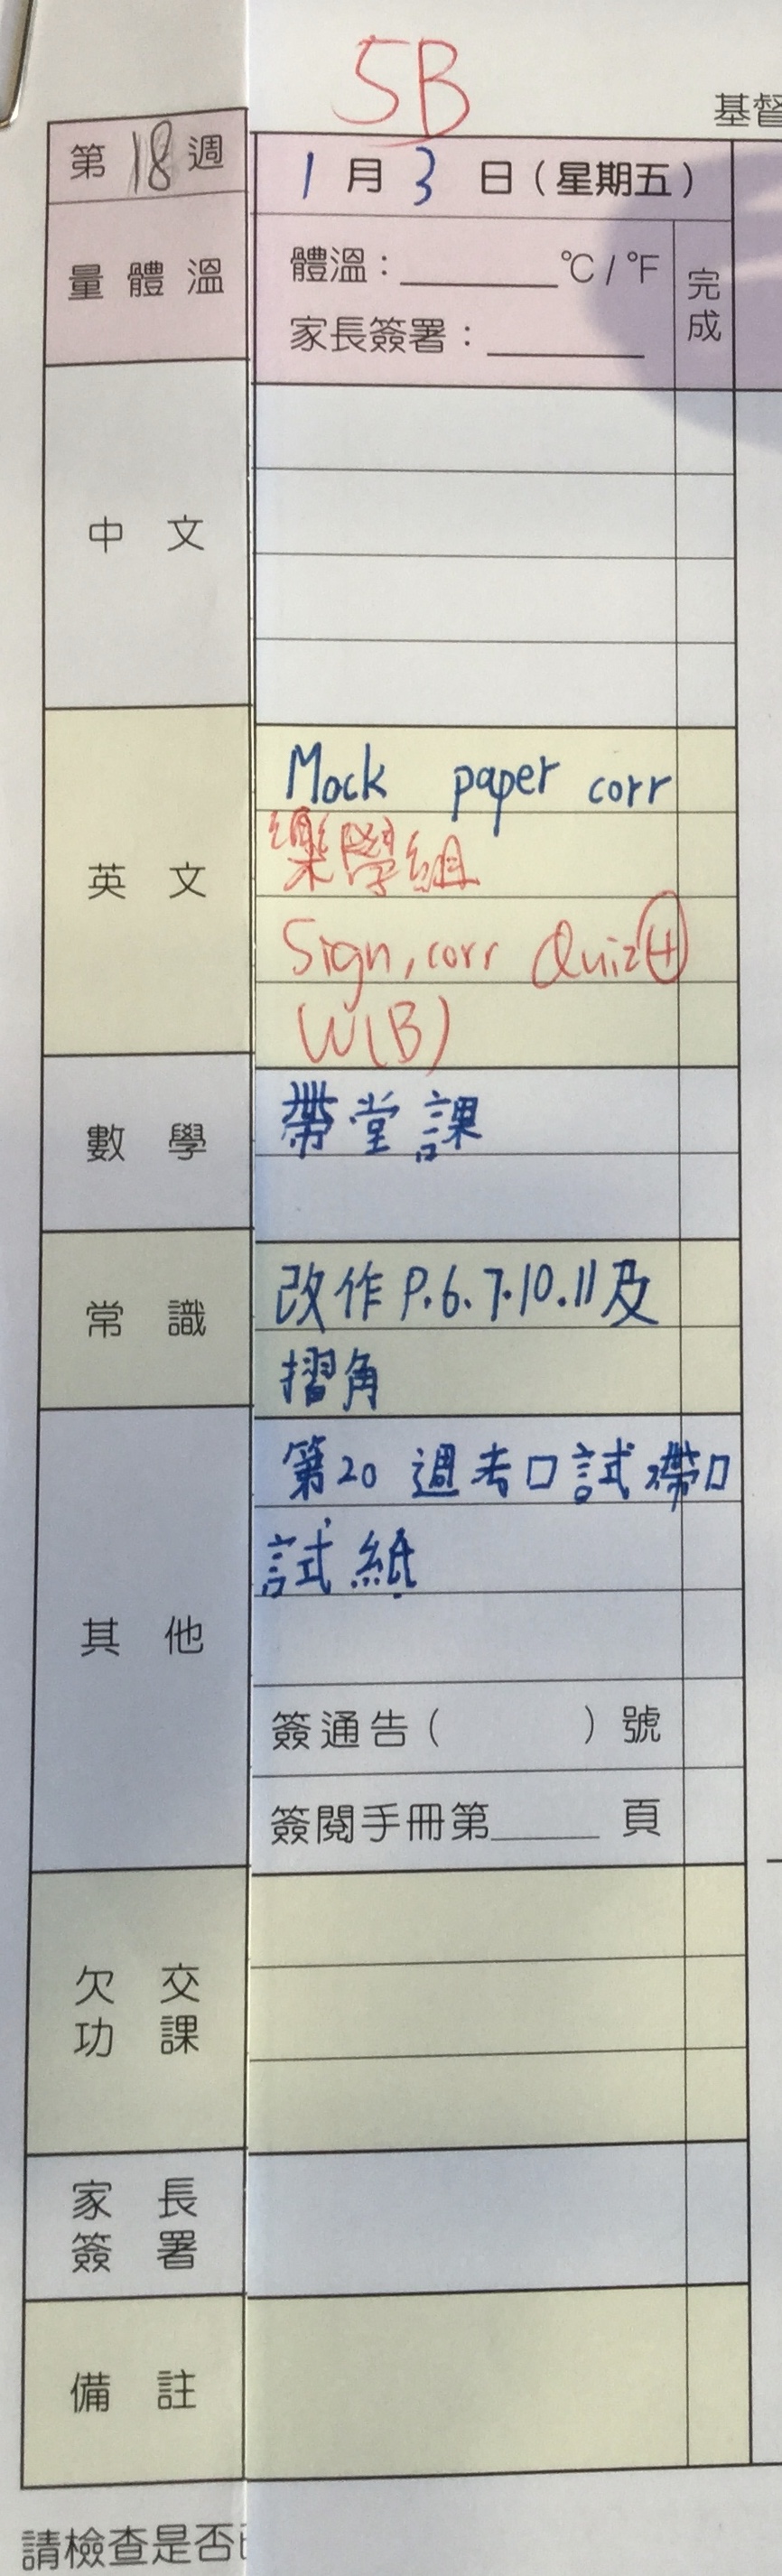 5B
基督
第18週
1月3日(星期五)
量體溫
體溫:______℃/℉
完成
家長簽署:______
中文
英文
Mock paper corr
樂學組
Sign, corr Quiz④
W(B)
數學
帶堂課
常識
改作P.6.7.10.11及
摺角
其他
第20週考口試帶口
試紙
簽通告( )號
簽閱手冊第____頁
欠交
功課
家長
簽署
備註
請檢查是否